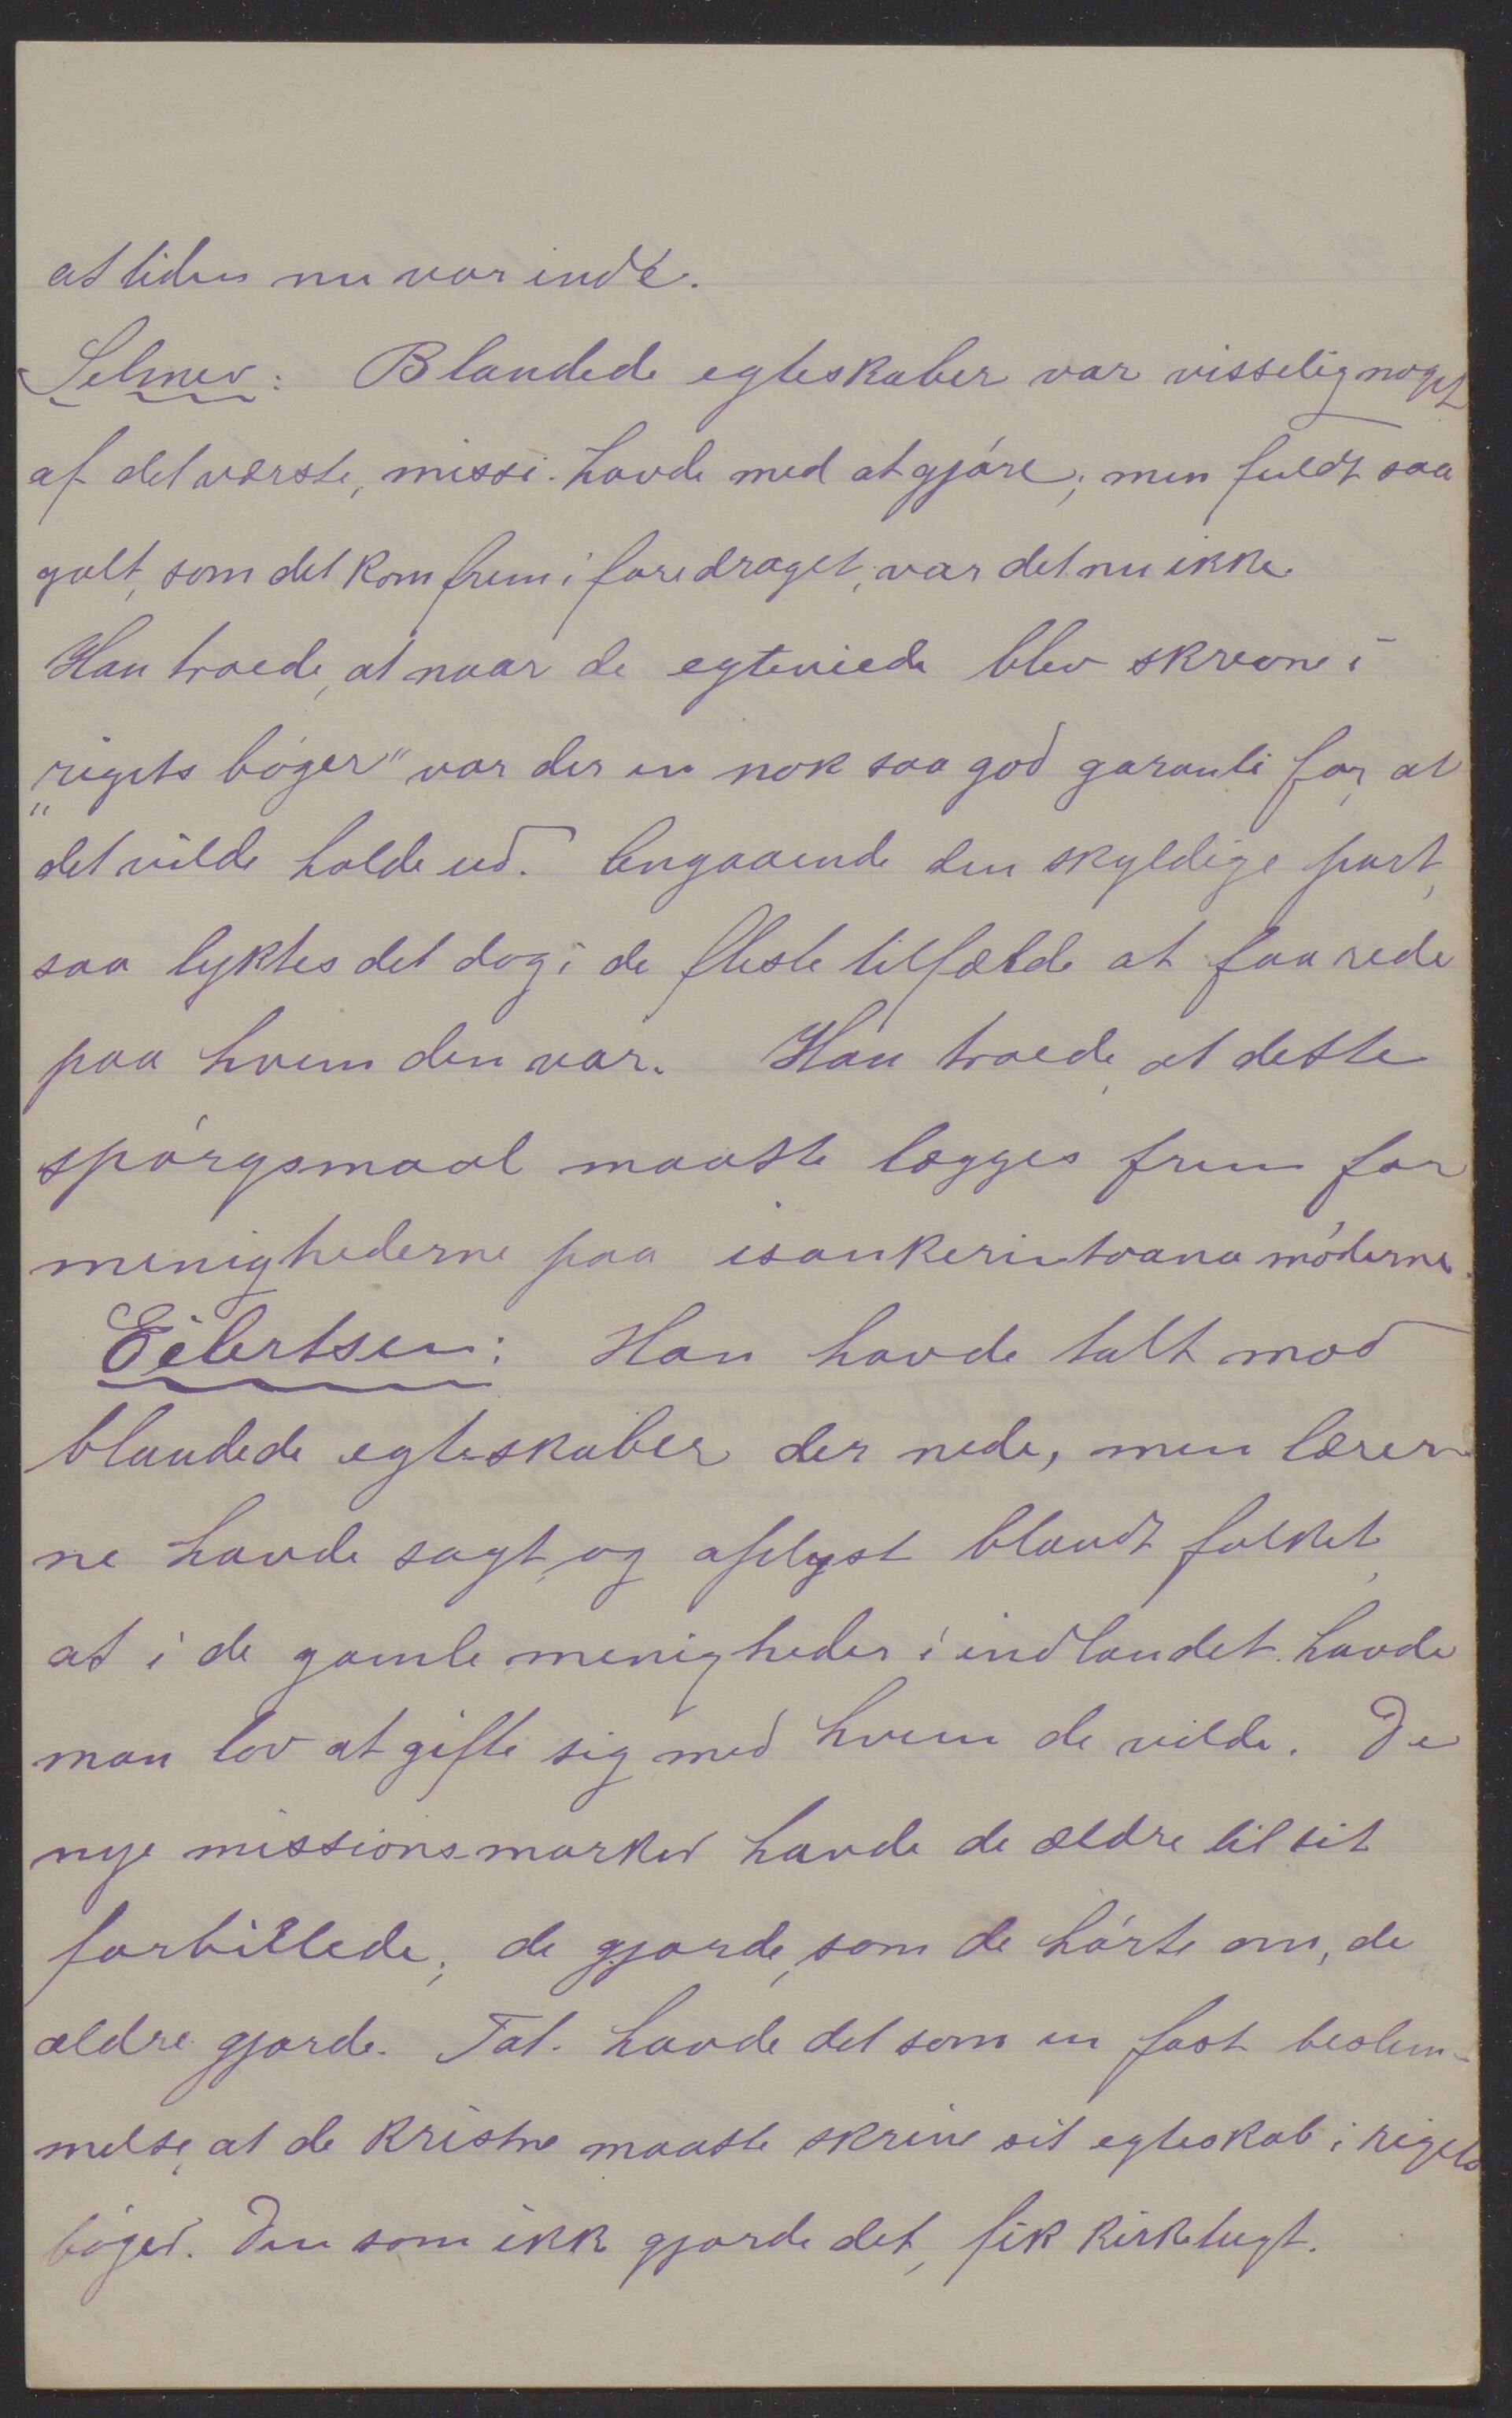 at tiden nu var inde.
Selmer: Blandede egteskaber var visselig noget
af det værste, missi. havde med at gjöre; men fuldt saa
galt, som det kom frem i foredraget, var det nu ikke.
Han troede, at naar de egteviede blev skrevne i
"rigets böger" var der en nok saa god garanti for, at
det vilde holde ud. Angaaende den skyldige part,
saa lyktes det dog i de fleste tilfælde at faa rede
paa hvem den var. Han troede, at dette
spörgsmaal maatte lægges frem for
menighederne paa isankerintoana möderne.
Eilertsen: Han havde talt mod
blandede egteskaber der nede, men lærer-
ne havde sagt, og oplyst blandt folket,
at i de gamle menigheder i indlandet havde
man lov at gifte sig med hvem de vilde. De
nye missionsmarker havde de ældre til sit
forbillede; de gjorde, som de hörte om, de
ældre gjorde. Tal. havde det som en fast bestem-
melse, at de kristne maatte skrive sit egteskab i rigets
böger. Den som ikke gjorde det, fik kirketugt.